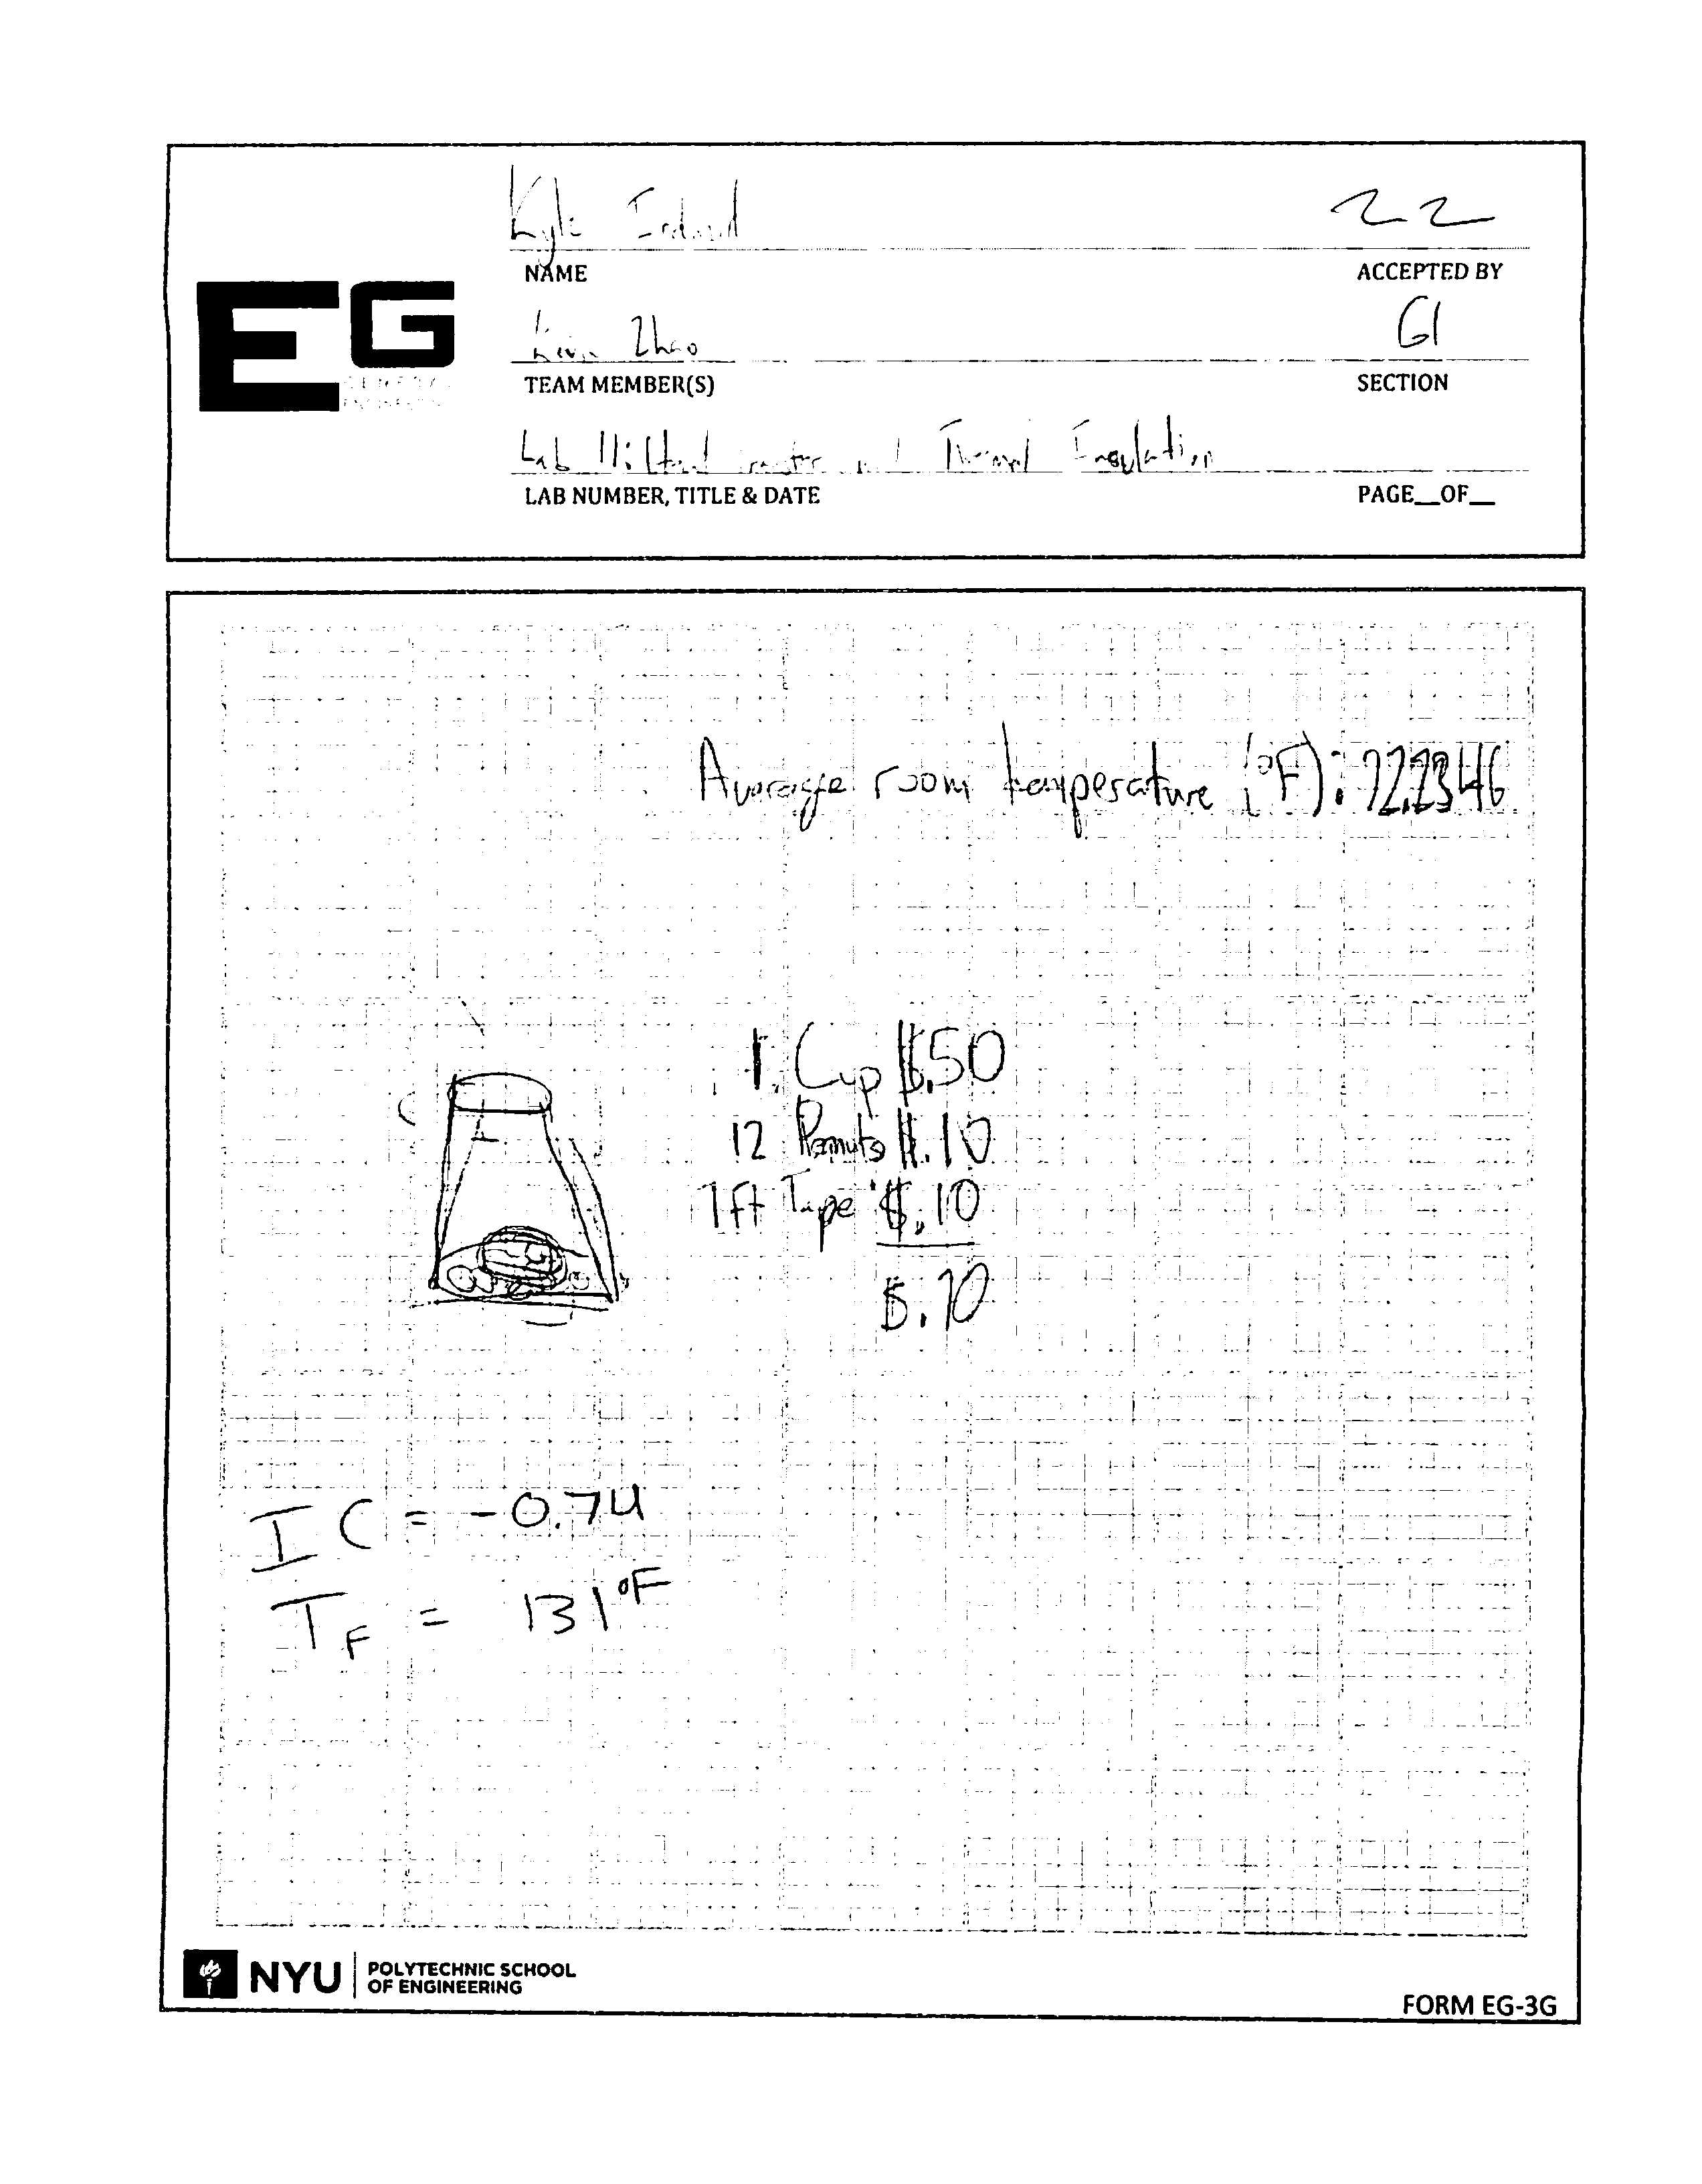 Kyle
22
NAME
ACCEPTED BY
EG
Zhao
G1
TEAM MEMBER(S)
SECTION
Lab 11: Thermal Insulation
LAB NUMBER, TITLE & DATE
PAGE__OF__
Average room temperature (°F): 72.2346
1. Cup $.50
12 Peanuts $.10
1ft Tape $.10
$.70
IC = -0.74
TF = 131°F
NYU
POLYTECHNIC SCHOOL
OF ENGINEERING
FORM EG-3G